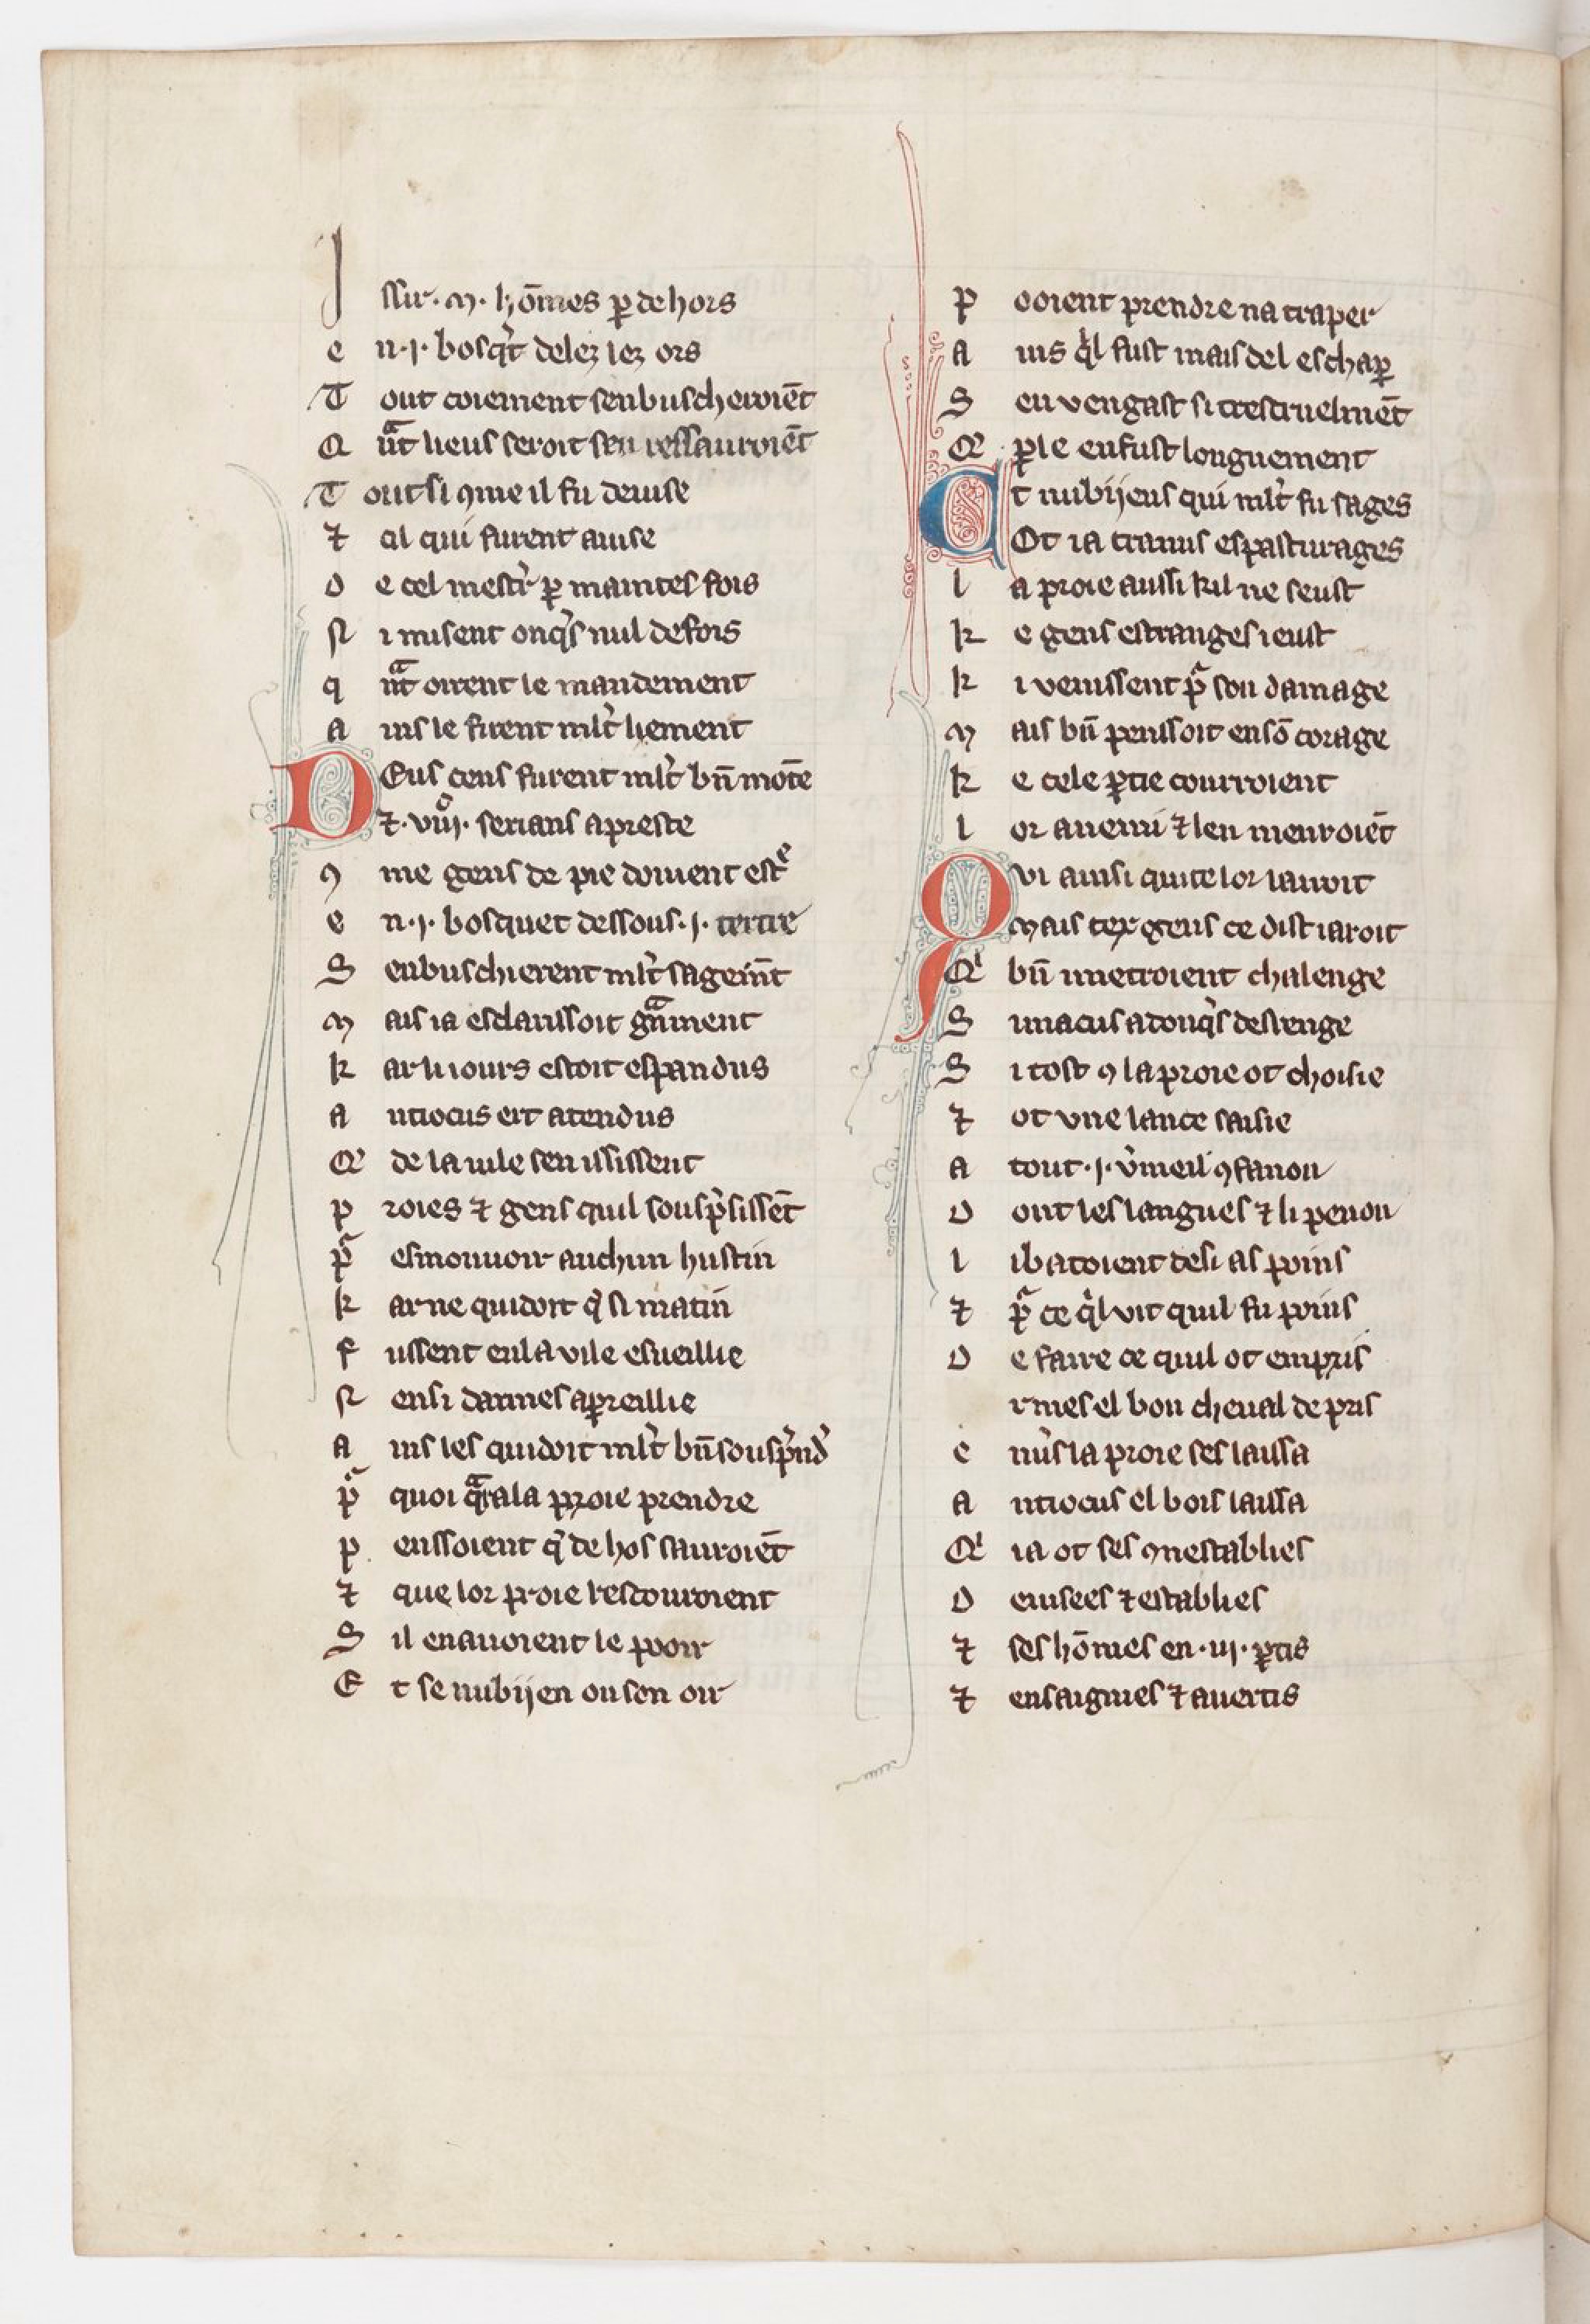 Issir .m. hōmes ꝑ dehors
en .j. bosqͥt delez lez ors
Tout coiement senbuscheroiēt
Qᵃ̄nt lieus seroit sen ressauroiēt
Tout si ꝯme il fu deuise
⁊ cil qui furent auise
de cel mestͥ ꝑ maintes fois
Ni misent onqͥs nul defois
qᵃnt oirent le mandement
ains le firent ml̄t liement
DEus cens furent ml̄t bn̄ mōte
⁊ .viijͦ. serians apreste
ꝯme gens de pie doiuent estᵉ
en .j. bosquet dessous .j. tertre
Senbuschierent ml̄t sagem̄t
mais ia esclarissoit gᵃnment
kar li iours estoit espandus
antiocus ert atendus
Qͥ de la uile sen ississent
proies ⁊ gens quil souspͥsissēt
pᵒ esmouuoir auchun hustin
kar ne quidoit qͥ si matin
fussent en la vile esueillie
Nensi darmes apꝑeillie
ains les quidoit ml̄t bn̄ souspͥndͤ
pᵒ quoi qᵃr a la proie prendre
penssoient qͥ de hos sauroiēt
⁊ que lor proie rescourroient
Sil en auoient le pooir
Et se nubijen ou son oir
pooient prendre natraper
ains qͥl fust mais del eschaꝑ
Sen vengast si trescruelmēt
Qͥ ꝑle en fust longuement
Ct nubijens qui ml̄t fu sages
Ot ia tramis es pasturages
la proie aussi kil ne seust
ke gens estranges i eust
ki venissent pᵒ son damage
mais bn̄ penssoit en sō corage
ke cele ꝑtie courroient
lor anemi ⁊ len menroiēt
Qvi ainsi quite lor lairoit
mais tex gens ce dist iaroit
Qͥ bn̄ i metroient chalenge
Sinacus adonqͥs desrenge
Si tost ꝯ la proie ot choisie
⁊ ot vne lance saisie
a tout .j. vͥmeil ꝯfanon
dont les langues ⁊ li penon
li batoient desi as poins
⁊ pᵒ ce qͥl vit quil fu poins
de faire ce quil ot empris
rmes el bon cheual de pris
enuͥs la proie ses laissa
antiocus el bois laissa
Qͥ ia ot ses ꝯnestablies
deuisees ⁊ establies
⁊ ses hōmes en .iij. ꝑtis
⁊ ensaignies ⁊ auertis